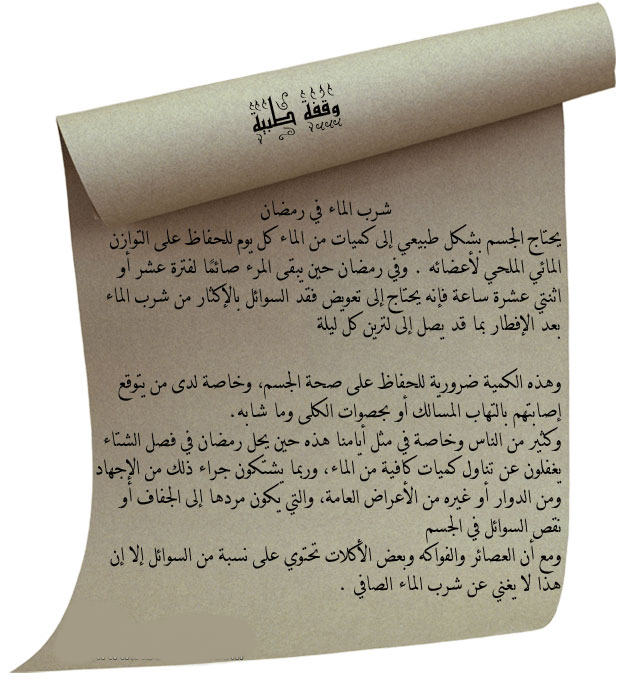 وقفة طبية
شرب الماء في رمضان
يحتاج الجسم بشكل طبيعي إلى كميات من الماء كل يوم للحفاظ على التوازن
المائي الملحي لأعضائه . وفي رمضان حين يبقى المرء صائمًا لفترة عشر أو
اثنتي عشرة ساعة فإنه يحتاج إلى تعويض فقد السوائل بالإكثار من شرب الماء
بعد الإفطار بما قد يصل إلى لترين كل ليلة
وهذه الكمية ضرورية للحفاظ على صحة الجسم، وخاصة لدى من يتوقع
إصابتهم بالتهاب المسالك أو بحصوات الكلى وما شابه.
وكثير من الناس وخاصة في مثل أيامنا هذه حين يحل رمضان في فصل الشتاء
يغفلون عن تناول كميات كافية من الماء، وربما يشتكون جراء ذلك من الإجهاد
ومن الدوار أو غيره من الأعراض العامة، والتي يكون مردها إلى الجفاف أو
نقص السوائل في الجسم
ومع أن العصائر والفواكه وبعض الأكلات تحتوي على نسبة من السوائل إلا إن
هذا لا يغني عن شرب الماء الصافي .